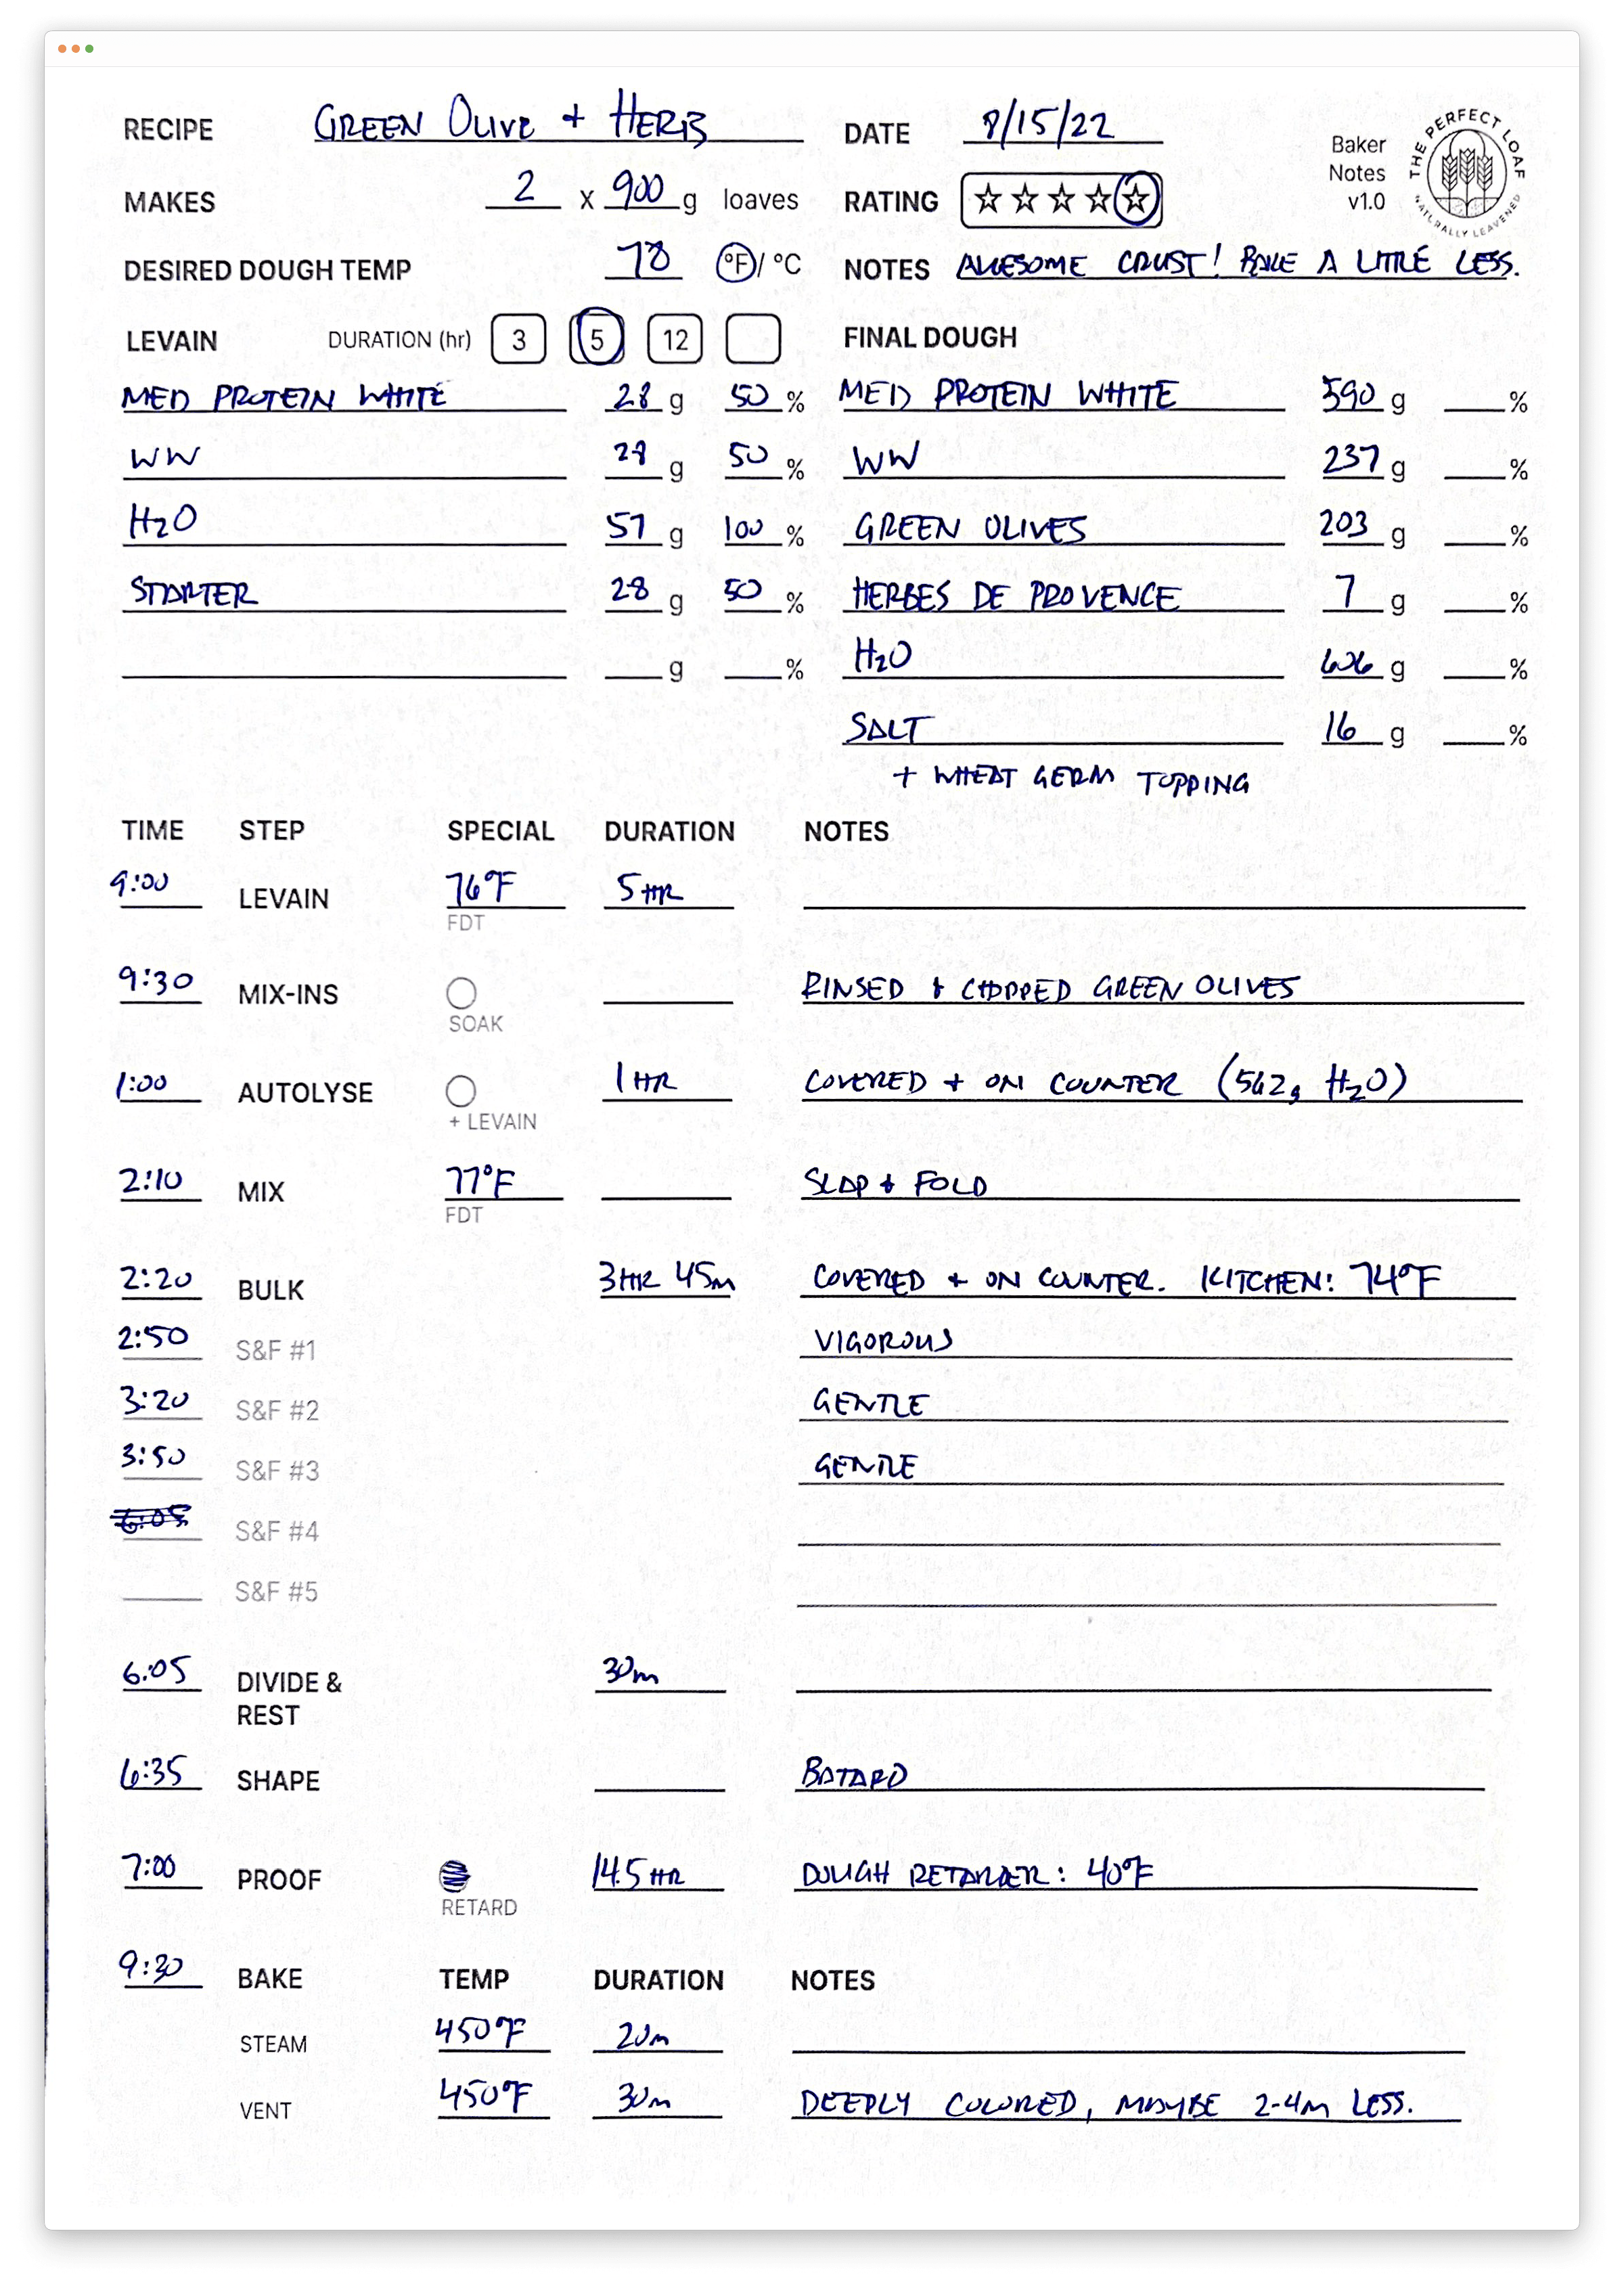 RECIPE GREEN OLIVE + HERB DATE 8/15/22
Baker Notes v1.0
THE PERFECT LOAF
NATURALLY LEAVENED
MAKES 2 x 900 g loaves RATING ☆☆☆☆☆
DESIRED DOUGH TEMP 78 °F/ °C NOTES AWESOME CRUST! BAKE A LITTLE LESS.
LEVAIN DURATION (hr) 3 5 12 FINAL DOUGH
MED PROTEIN WHITE 28 g 50 % MED PROTEIN WHITE 590 g %
WW 28 g 50 % WW 237 g %
H2O 57 g 100 % GREEN OLIVES 203 g %
STARTER 28 g 50 % HERBES DE PROVENCE 7 g %
g % H2O 606 g %
SALT 16 g %
+ WHEAT GERM TOPPING
TIME STEP SPECIAL DURATION NOTES
9:00 LEVAIN 76°F 5 HR
FDT
9:30 MIX-INS RINSED + CHOPPED GREEN OLIVES
SOAK
1:00 AUTOLYSE 1 HR COVERED + ON COUNTER (562g H2O)
+ LEVAIN
2:10 MIX 77°F SLAP + FOLD
FDT
2:20 BULK 3 HR 45m COVERED + ON COUNTER. KITCHEN: 74°F
2:50 S&F #1 VIGOROUS
3:20 S&F #2 GENTLE
3:50 S&F #3 GENTLE
6:05 S&F #4
S&F #5
6:05 DIVIDE & REST 30m
6:35 SHAPE BATARD
7:00 PROOF 14.5 HR DOUGH RETARDER: 40°F
RETARD
9:30 BAKE TEMP DURATION NOTES
STEAM 450°F 20m
VENT 450°F 30m DEEPLY COLORED, MAYBE 2-4m LESS.